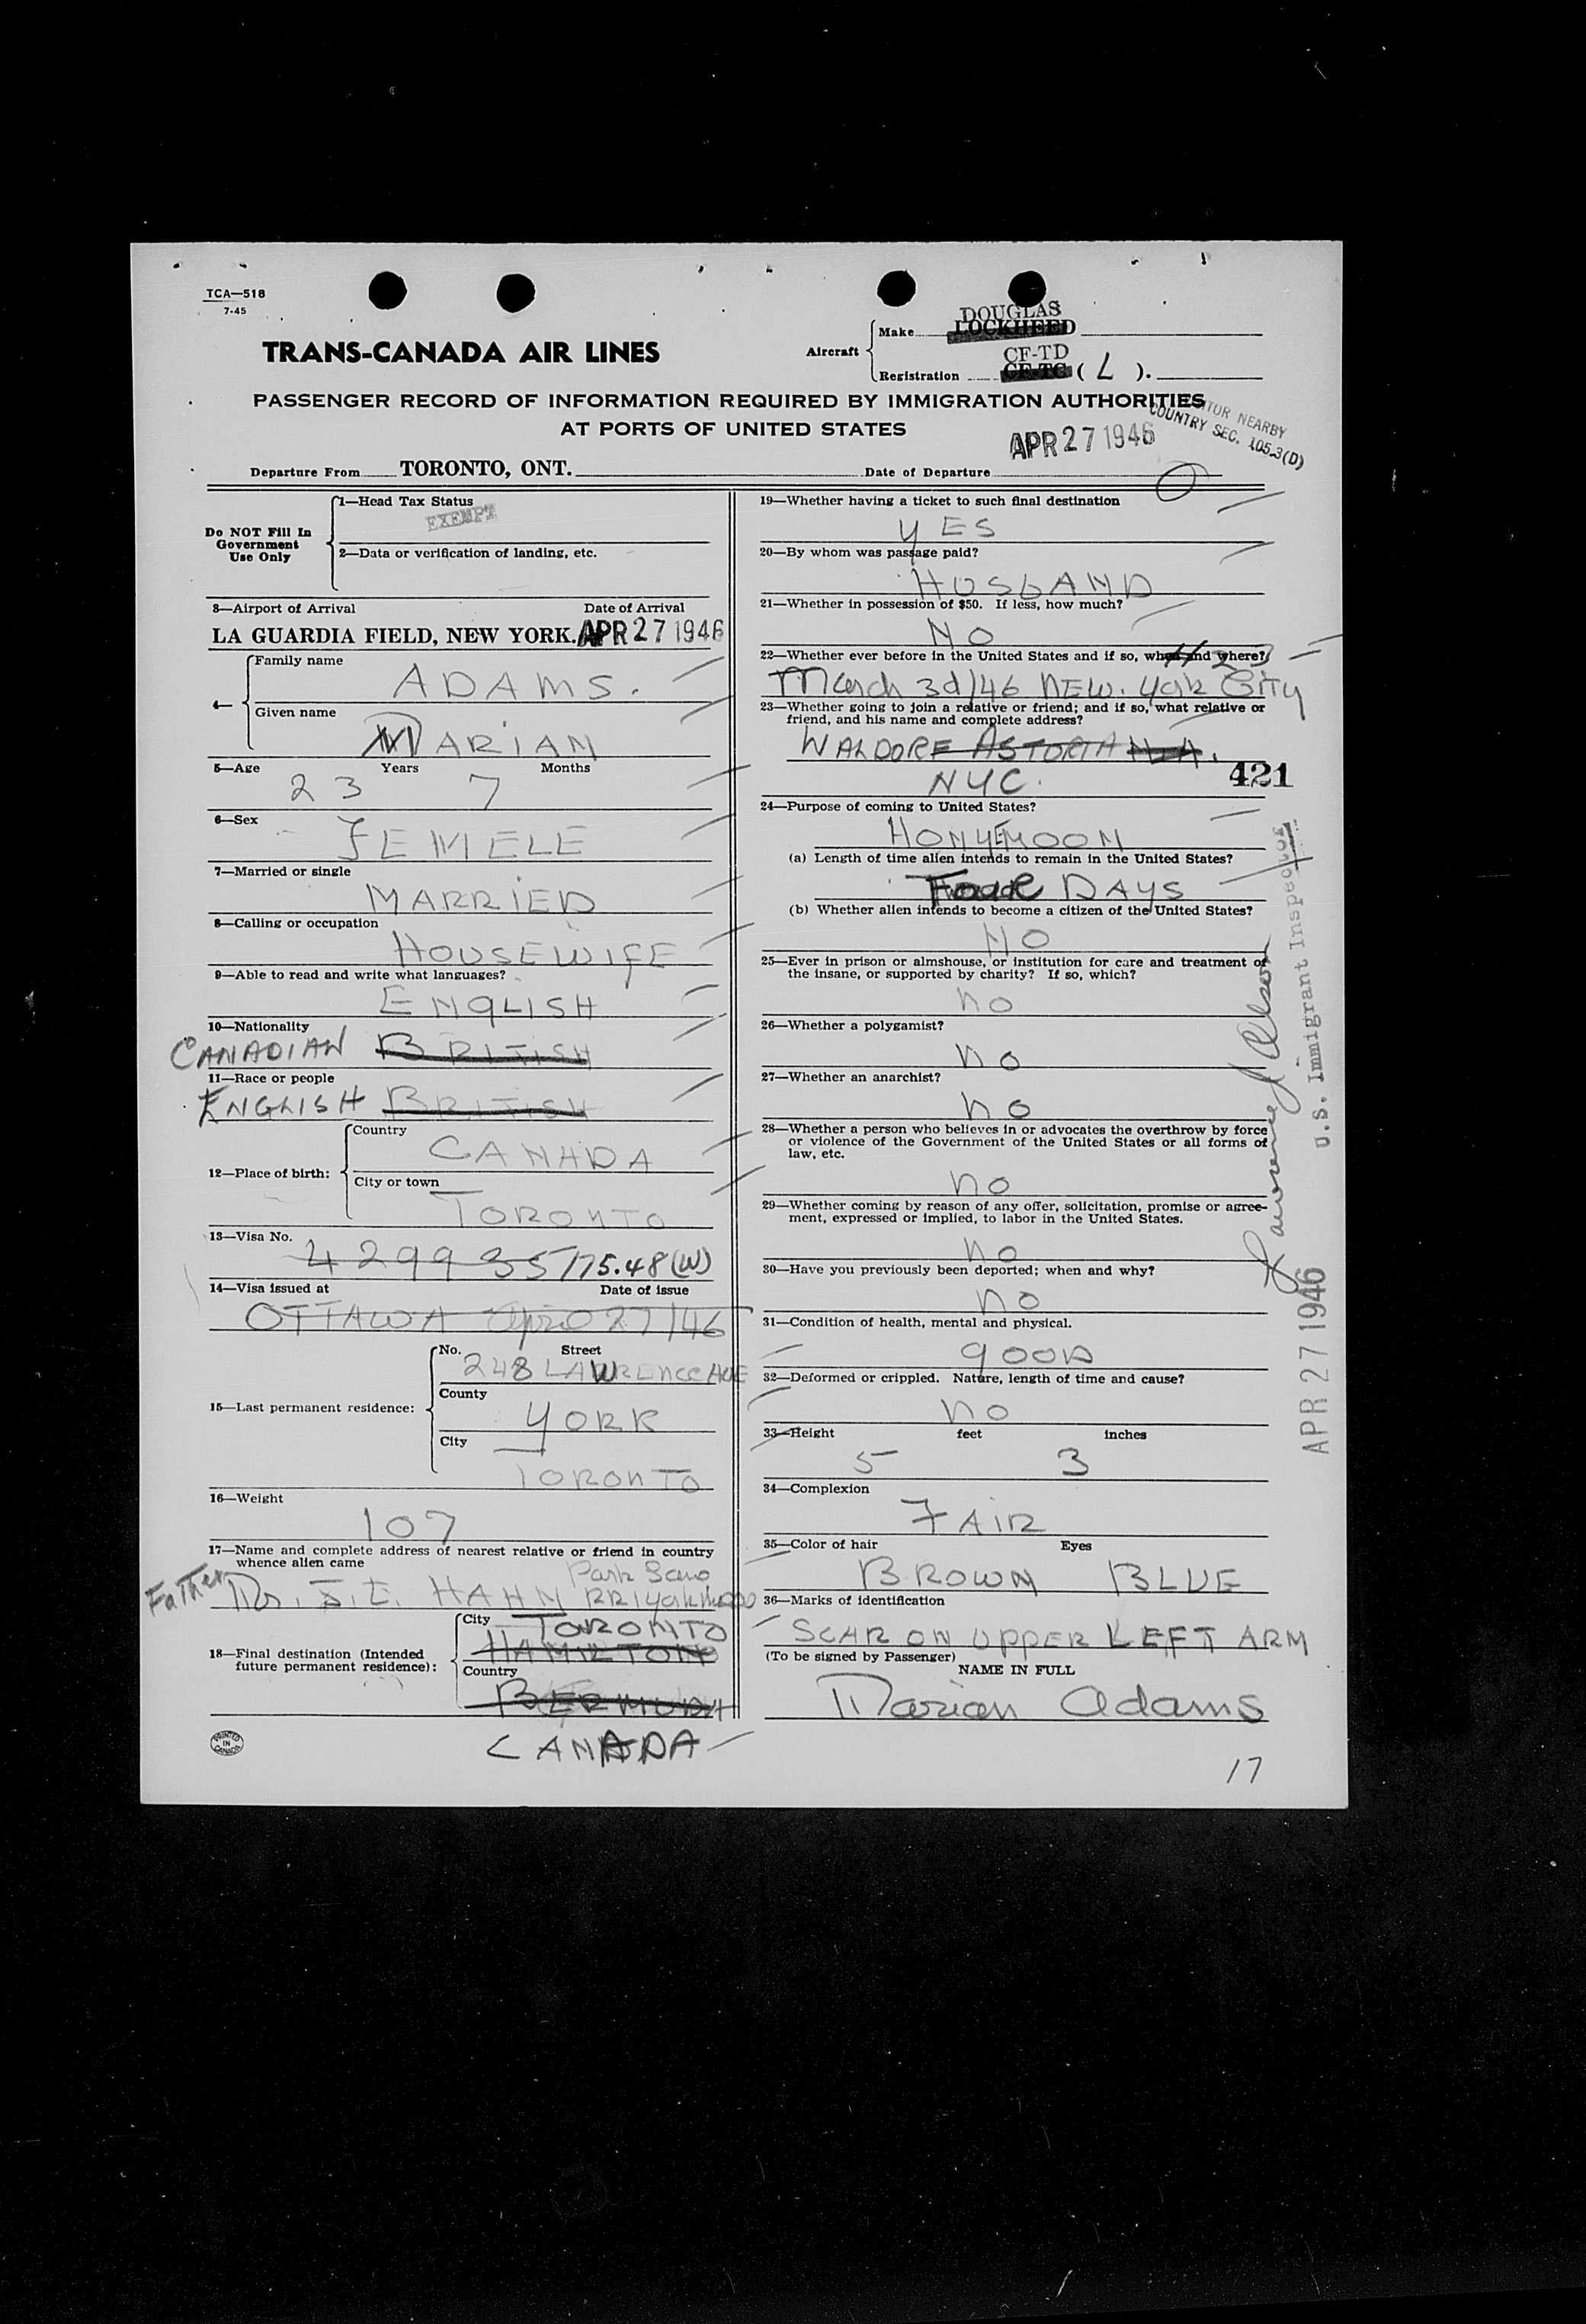 TCA—518
7-45
TRANS-CANADA AIR LINES
Aircraft
Make
DOUGLAS
LOCKHEED
Registration
CF-TD
CF-TC ( L ).
PASSENGER RECORD OF INFORMATION REQUIRED BY IMMIGRATION AUTHORITIES
AT PORTS OF UNITED STATES
NEARBY
COUNTRY SEC. 105.3(D)
Departure From TORONTO, ONT.
Date of Departure APR 27 1946
Do NOT Fill In
Government
Use Only
1—Head Tax Status
EXEMPT
2—Data or verification of landing, etc.
3—Airport of Arrival Date of Arrival
LA GUARDIA FIELD, NEW YORK. APR 27 1946
4—
Family name
ADAMS.
Given name
MARIAN
5—Age Years Months
23 7
6—Sex
FEMELE
7—Married or single
MARRIED
8—Calling or occupation
HOUSEWIFE
9—Able to read and write what languages?
ENGLISH
10—Nationality
CANADIAN BRITISH
11—Race or people
ENGLISH BRITISH
12—Place of birth:
Country
CANADA
City or town
TORONTO
13—Visa No.
429935 175.48 (W)
14—Visa issued at Date of issue
OTTAWA April 27/46
15—Last permanent residence:
No. Street
248 LAWRENCE AVE
County
YORK
City
TORONTO
16—Weight
107
17—Name and complete address of nearest relative or friend in country
whence alien came
Park
Father HAHN RR1
18—Final destination (Intended
future permanent residence):
City
TORONTO
HAMILTON
Country
BERMUDA
CANADA
PRINTED
IN
CANADA
19—Whether having a ticket to such final destination
YES
20—By whom was passage paid?
HUSBAND
21—Whether in possession of $50. If less, how much?
NO
22—Whether ever before in the United States and if so, when and where?
March 3d/46 NEW. York CITY
23—Whether going to join a relative or friend; and if so, what relative or
friend, and his name and complete address?
WALDORF ASTORIA
NYC.
421
24—Purpose of coming to United States?
HONYEMOON
(a) Length of time alien intends to remain in the United States?
DAYS
(b) Whether alien intends to become a citizen of the United States?
NO
25—Ever in prison or almshouse, or institution for care and treatment of
the insane, or supported by charity? If so, which?
no
26—Whether a polygamist?
no
27—Whether an anarchist?
no
28—Whether a person who believes in or advocates the overthrow by force
or violence of the Government of the United States or all forms of
law, etc.
no
29—Whether coming by reason of any offer, solicitation, promise or agree-
ment, expressed or implied, to labor in the United States.
no
30—Have you previously been deported; when and why?
no
31—Condition of health, mental and physical.
GOOD
32—Deformed or crippled. Nature, length of time and cause?
no
33—Height feet inches
5 3
34—Complexion
FAIR
35—Color of hair Eyes
BROWN BLUE
36—Marks of identification
SCAR ON UPPER LEFT ARM
(To be signed by Passenger)
NAME IN FULL
Marian Adams
17
U.S. Immigrant Inspector
APR 27 1946